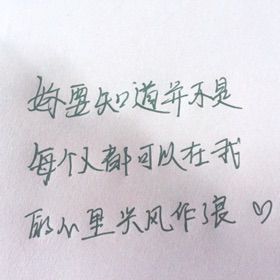 你要知道并不是
每个人都可以在我
的心里兴风作浪 ♡